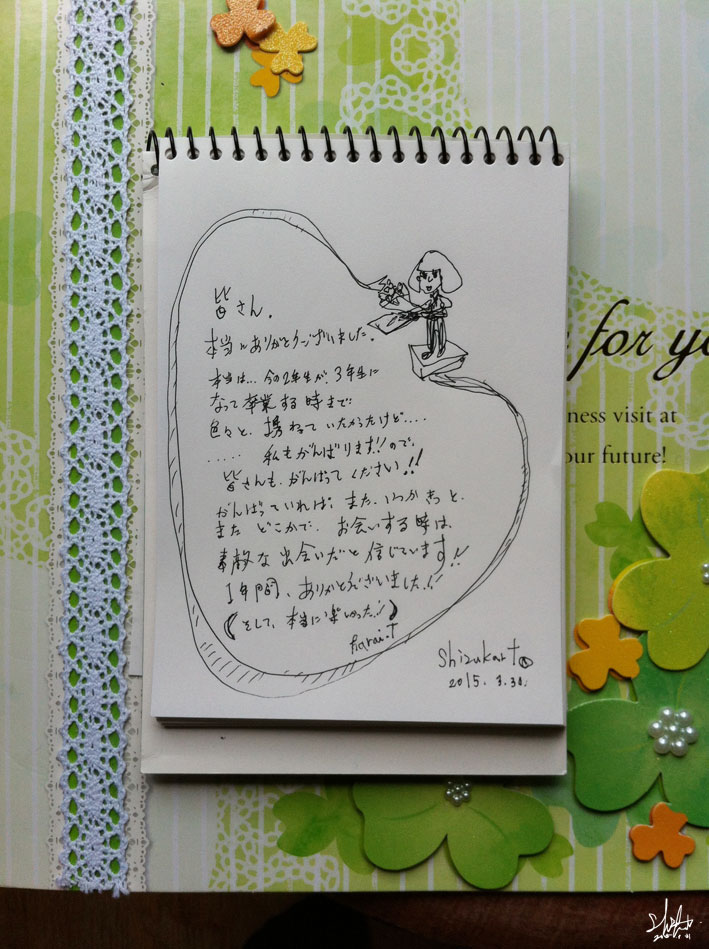 皆さん。
本当にありがとうございました。
本当は... 今の2年生が、3年生に
なって卒業する時まで
色々と、携わっていたかったけど....
..... 私もがんばります!!ので、
皆さんも、がんばってください!!
がんばっていれば、また、いつかきっと、
また どこかで、お会いする時は、
素敵な出会いだと信じています!!
1年間、ありがとうございました!!
(そして、本当に楽しかった!)
Arai.T
Shizukart
2015. 3.30.
for yo
ness visit at
our future!